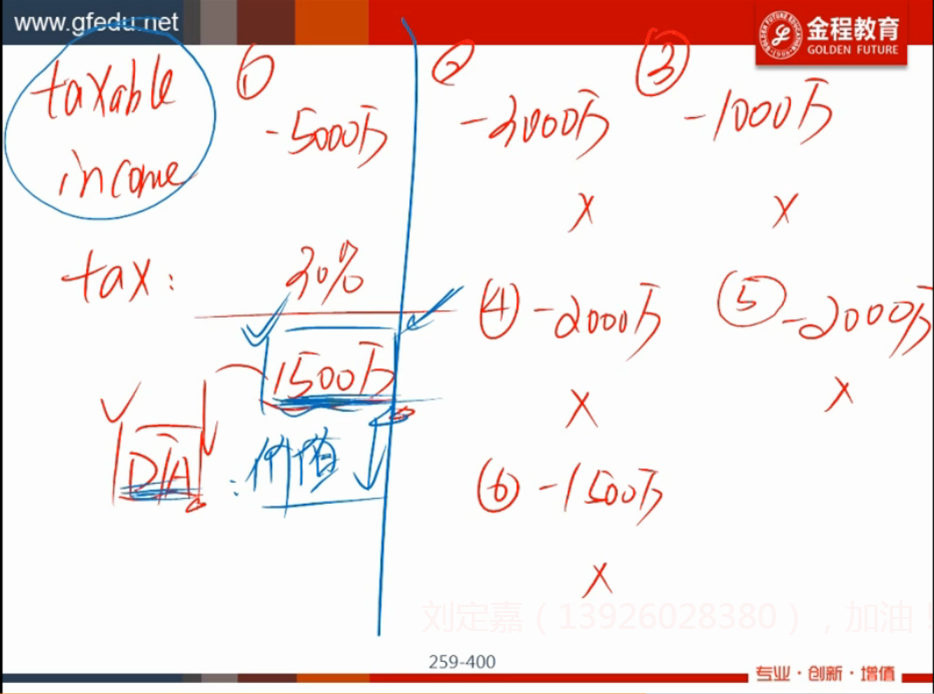 www.gfedu.net
金程教育
GOLDEN FUTURE
taxable income
① -5000万
② -3000万
③ -1000万
× ×
tax: 30%
1500万
DTA : 价值
④ -2000万
⑤ -2000万
× ×
⑥ -1500万
×
刘定嘉（13926028380），加油！
259-400
专业·创新·增值